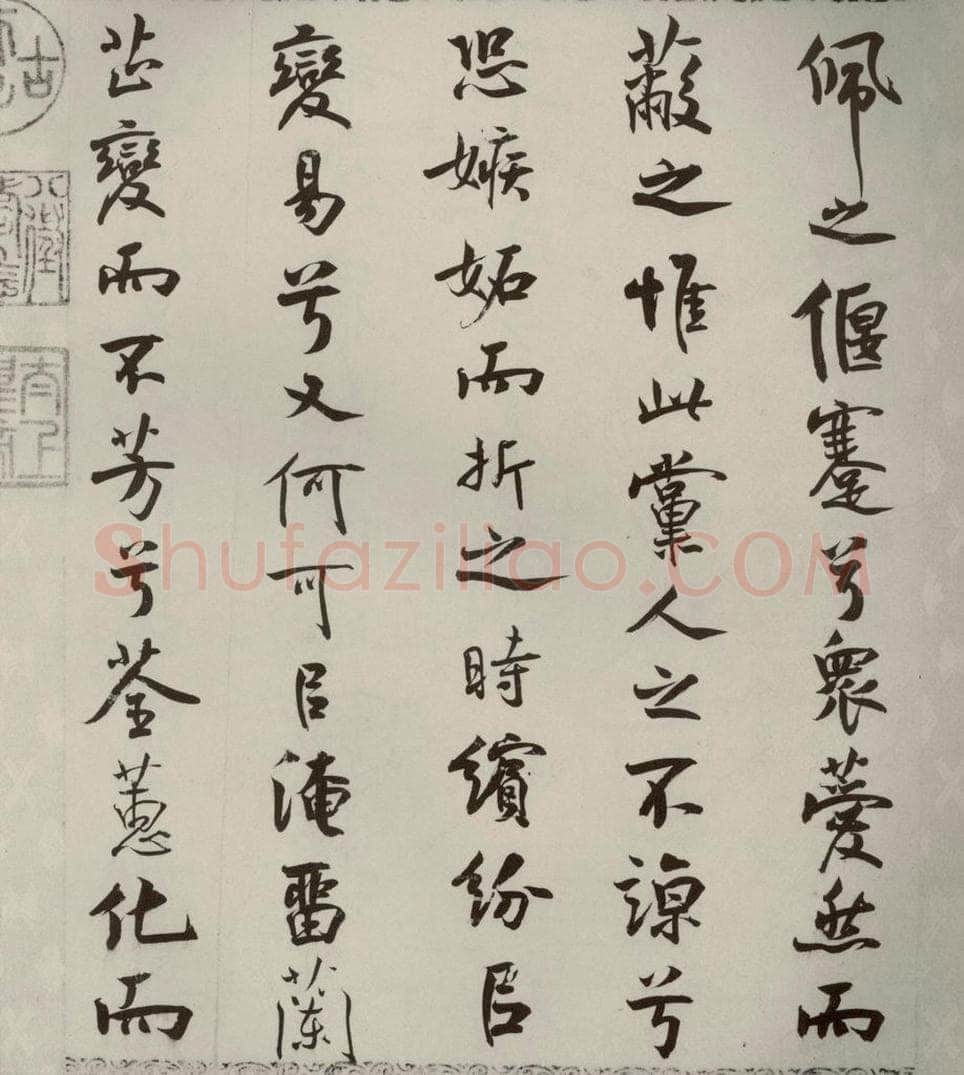 佩之偃蹇兮眾薆然而
蔽之惟此黨人之不諒兮
恐嫉妬而折之時繽紛㠯
變易兮又何可㠯淹畱蘭
芷變而不芳兮荃蕙化而
Shufaziliao.COM